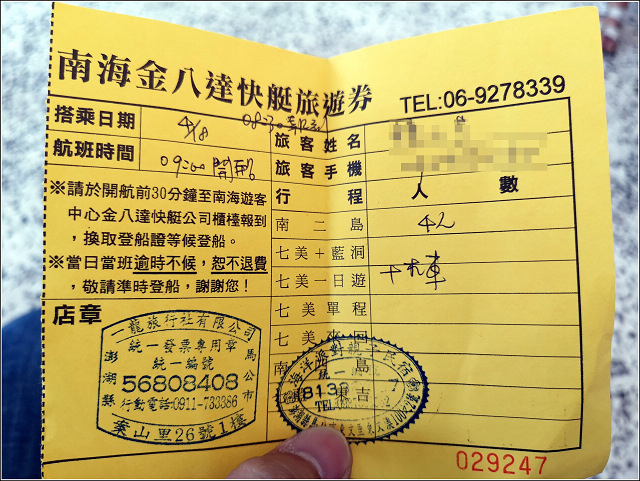 南海金八達快艇旅遊券
TEL:06-9278339
搭乘日期 4/8 08:30報到
航班時間 09:00開船
旅客姓名
旅客手機
※請於開航前30分鐘至南海遊客
中心金八達快艇公司櫃檯報到
，換取登船證等候登船。
※當日當班逾時不候，恕不退費
，敬請準時登船，謝謝您！
行程 人數
南二島 4人
七美+藍洞
七美一日遊 +汽車
七美單程
七美來回
南 島
店章
一龍旅行社有限公司
統一發票專用章
統一編號
澎湖縣 56808408 馬公市
行動電話0911-733386
案山里26號1樓
海洋灣對親子民宿
統一
8138 東吉
TEL
029247